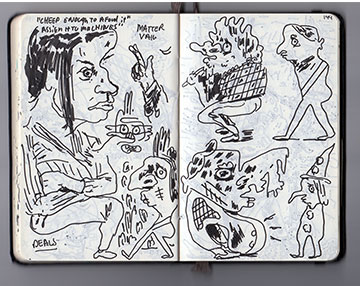 "CHEEP ENOUGH TO AFORD
ASSIGN IT TO MACHINES"
MATTER
DEALS